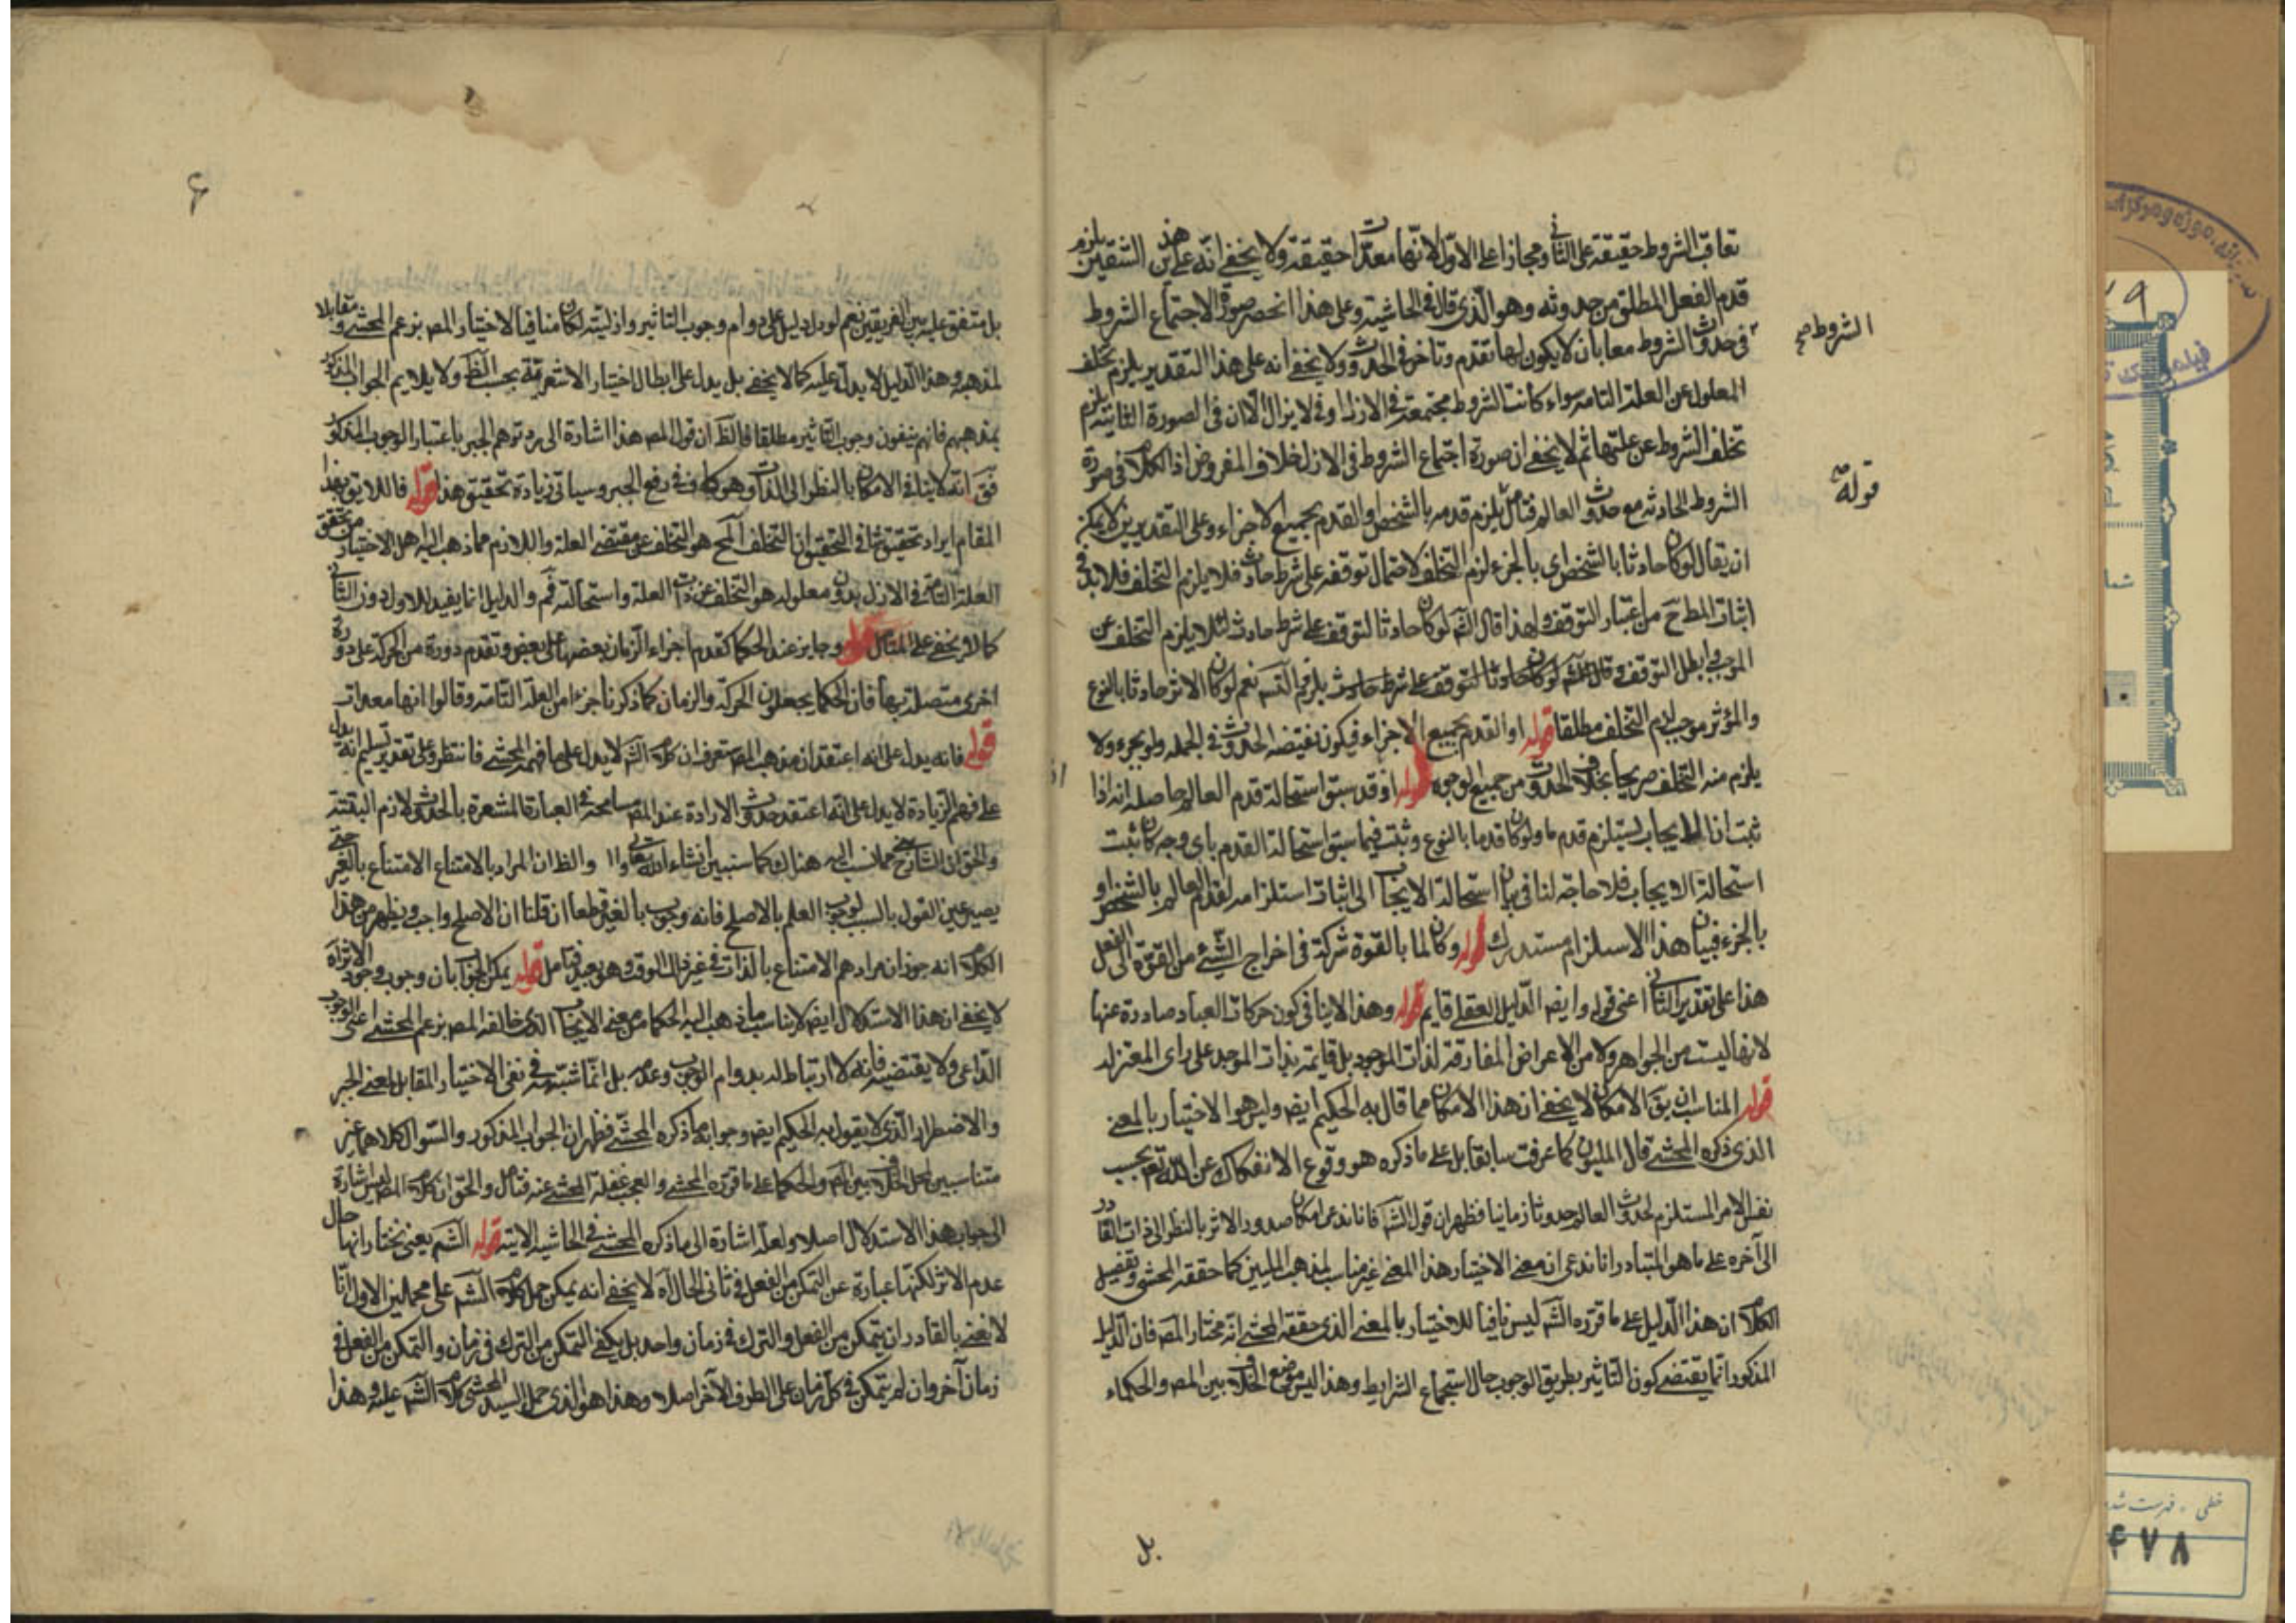 تعاقب الشروط حقيقة على الثاني ومجازا على الاول لانها معدات حقيقة ولا يخفى انه على هذين الشقين يلزم
قدم الفعل المطلق من حدوثه وهو الذى قال فى الحاشية وعلى هذا انحصر صورة الاجتماع الشروط
فى حدوث الشروط معا بان لا يكون لها تقدم وتاخر فى الحدوث ولا يخفى انه على هذا التقدير يلزم تخلف
المعلول عن العلة التامة سواء كانت الشروط مجتمعة فى الازل او فى لا يزال الا ان فى الصورة الثانية يلزم
تخلف الشروط عن علتها ثم لا يخفى ان صورة اجتماع الشروط فى الازل خلاف المفروض اذ الكلام فى صورة
الشروط الحادثه مع حدوث العالم فتامل يلزم قدمه بالشخص او القدم بجميع الاجزاء وعلى التقديرين لا يمكن
ان يقال لو كان حادثا بالشخص اى بالجزء لزم التخلف لاحتمال توقفه على شرط حادث فلا يلزم التخلف فلا بد فى
اثبات المط ح من اعتبار التوقف ولهذا قال الش لو كان حادثا لتوقف على شرط حادث لئلا يلزم التخلف عن
الموجب وابطل التوقف لو كان حادثا لتوقف على شرط حادث يلزم التس نعم لو كان الاثر حادثا بالنوع
والمؤثر موجب لزم التخلف مطلقا قوله او القدم بجميع الاجزاء فيكون نقيضه الحدوث فى الجمله ولو بجزء ولا
يلزم منه التخلف صريحا بخلاف الحدوث من جميع الوجوه قوله اذ قد سبق استحالة قدم العالم حاصله انه اذا
ثبت ان الايجاب يستلزم قدم ما ولو كان قدما بالنوع وثبت فيما سبق استحالة القدم باى وجه كان ثبت
استحالة الايجاب فلا حاجة لنا فى بيان استحالة الايجاب الى اثبات استلزامه لقدم العالم بالشخص او
بالجزء فبيان هذا الاستلزام مستدرك قوله وكان لما بالقوة شركة فى اخراج الشئ من القوة الى الفعل
هذا على تقدير الثانى اعنى قوله وايضا الدليل العقلى قايم قوله وهذا لا ينافى كون حركات العباد صادرة عنها
لانها ليست من الجواهر ولا من الاعراض المفارقة لذات الموجود بل قايمة بذات الموجد على راى المعتزله
قوله المناسب ان يق الامكان لا يخفى ان هذا الامكان مما قال به الحكيم ايضا وليس هو الاختيار بالمعنى
الذى ذكره المحشى قال المليون كما عرفت سابقا بل على ما ذكره هو وقوع الانفكاك عن الله تع بحسب
نفس الامر المستلزم لحدوث العالم حدوثا زمانيا فظهر ان قول الش فانا ندعى امكان صدور الاثر بالنظر الى ذات القادر
الى آخره على ما هو المتبادر انا ندعى ان معنى الاختيار هذا المعنى غير مناسب لمذهب المليين كما حققه المحشى وتفصيل
الكلام ان هذا الدليل على ما قرره الش ليس نافيا للاختيار بالمعنى الذى حققه المحشى انه مختار المص فان الدليل
المذكور انما يقتضى كون التاثير بطريق الوجوب حال استجماع الشرايط وهذا ليس موضع الخلاف بين المص والحكماء
الشروط صح
قوله
بل
۶
بل متفق عليه بين الفريقين نعم لو دل دليل على دوام وجوب التاثير وازليته لكان منافيا لاختيار المص بزعم المحشى ومقابلا
لمذهبه وهذا الدليل لا يدل عليه كما لا يخفى بل يدل على ابطال اختيار الاشعرية بحسب الظ ولا يلايم الجواب المذكور
بمذهبهم فانهم ينفون وجوب التاثير مطلقا فالظ ان قول المص هذا اشارة الى رد توهم الجبر باعتبار الوجوب المذكور
انه لا ينافى الامكان بالنظر الى الذات وهو كاف فى رفع الجبر وسياتى زيادة تحقيق هذا قوله فاللايق بهذا
المقام ايراد تحقيق ثم التحقيق ان التخلف المح هو التخلف عن مقتضى العلة واللازم مما ذهب اليه اهل الاختيار من تحقق
العلة التامة فى الازل بدون معلوله هو التخلف عن ذات العلة واستحالته مم والدليل انما يفيد للاول دون الثانى
كما لا يخفى على المتامل قوله وجايز عند الحكما كتقدم اجزاء الزمان بعضها على بعض وتقدم دورة من الحركة على دورة
اخرى متصلة بها فان الحكما يجعلون الحركة والزمان كما ذكرنا جزءا من العلة التامة وقالوا انها معدات
قوله فانه يدل على انه اعتقد ان مذهب المص ستعرف ان كلام الش لا يدل على ما فهمه المحشى فانتظر وعلى تقدير تسليم انه يدل
على فهم الزيادة لا يدل على انه اعتقد حدوث الارادة عند المص العبارة المشعرة بالحدوث ولازم البتة
والحق ان الشارح مما نسب اليه هناك كما سنبين انشاء الله تعالى والظ ان المراد بالامتناع الامتناع بالغير حتى
يصير عين القول بالسبب لوجوب العلم بالاصلح فانه وجوب بالغير قطعا ان قلنا ان الاصلح واجب ويظهر من هذا
الكلام انه جوز ان مرادهم الامتناع بالذات فى غير ذلك الوقت وهو بعيد فتامل قوله يمكن الجواب بان وجوب وجود الاثر اه
لا يخفى ان هذا الاستدلال ايضا لا يناسب ما ذهب اليه الحكما من معنى الايجاب الذى خالفه المص بزعم المحشى اعنى الوجوب
الداعى ولا يقتضيه فانه لا ارتباط له بدوام الوجوب وعدمه بل انما شبثه فى نفى الاختيار المقابل لمعنى الجبر
والاضطرار الذى لا يقول به الحكيم ايضا وجوابه ما ذكره المحشى فظهر ان الجواب المذكور والسؤال كلاهما غير
متناسبين لمحل الخلاف بين المص والحكما على ما قرره المحشى والعجب غفلة المحشى عنه فتامل والحق ان كلام المص ليس اشارة
الى جواب هذا الاستدلال اصلا ولعله اشارة الى ما ذكره المحشى فى الحاشية الاتية قوله الش يعنى نختار انها حال
عدم الاثر لكنها عبارة عن التمكن من الفعل فى ثانى الحال اه لا يخفى انه يمكن حمل كلام الش على محملين الاول انا
لا نعنى بالقادر ان يتمكن من الفعل والترك فى زمان واحد بل يكفى التمكن من الترك فى زمان والتمكن من الفعل فى
زمان آخر وان لم يتمكن فى كل زمان على الطرف الآخر اصلا وهذا هو الذى حمل السيد المحشى كلام الش عليه وهذا
خطى - فهرست شده
۴۷۸